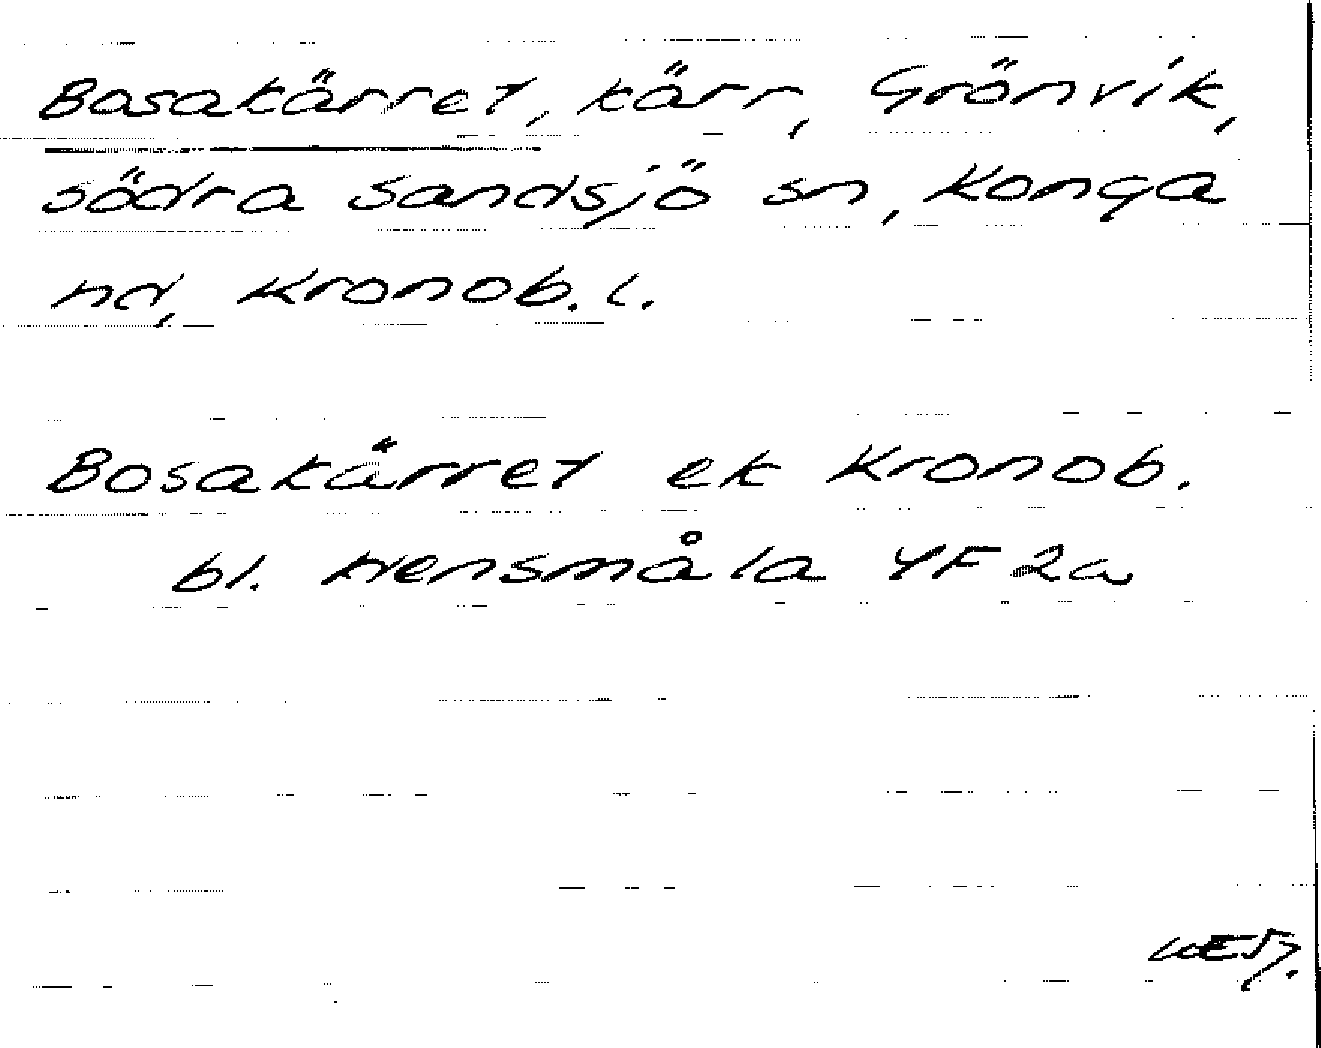 Bosakärret, kärr, Grönvik,
södra Sandsjö sn, Konga
hd, Kronob. l.
Bosakärret ek Kronob.
bl. Hensmåla 4F 2a